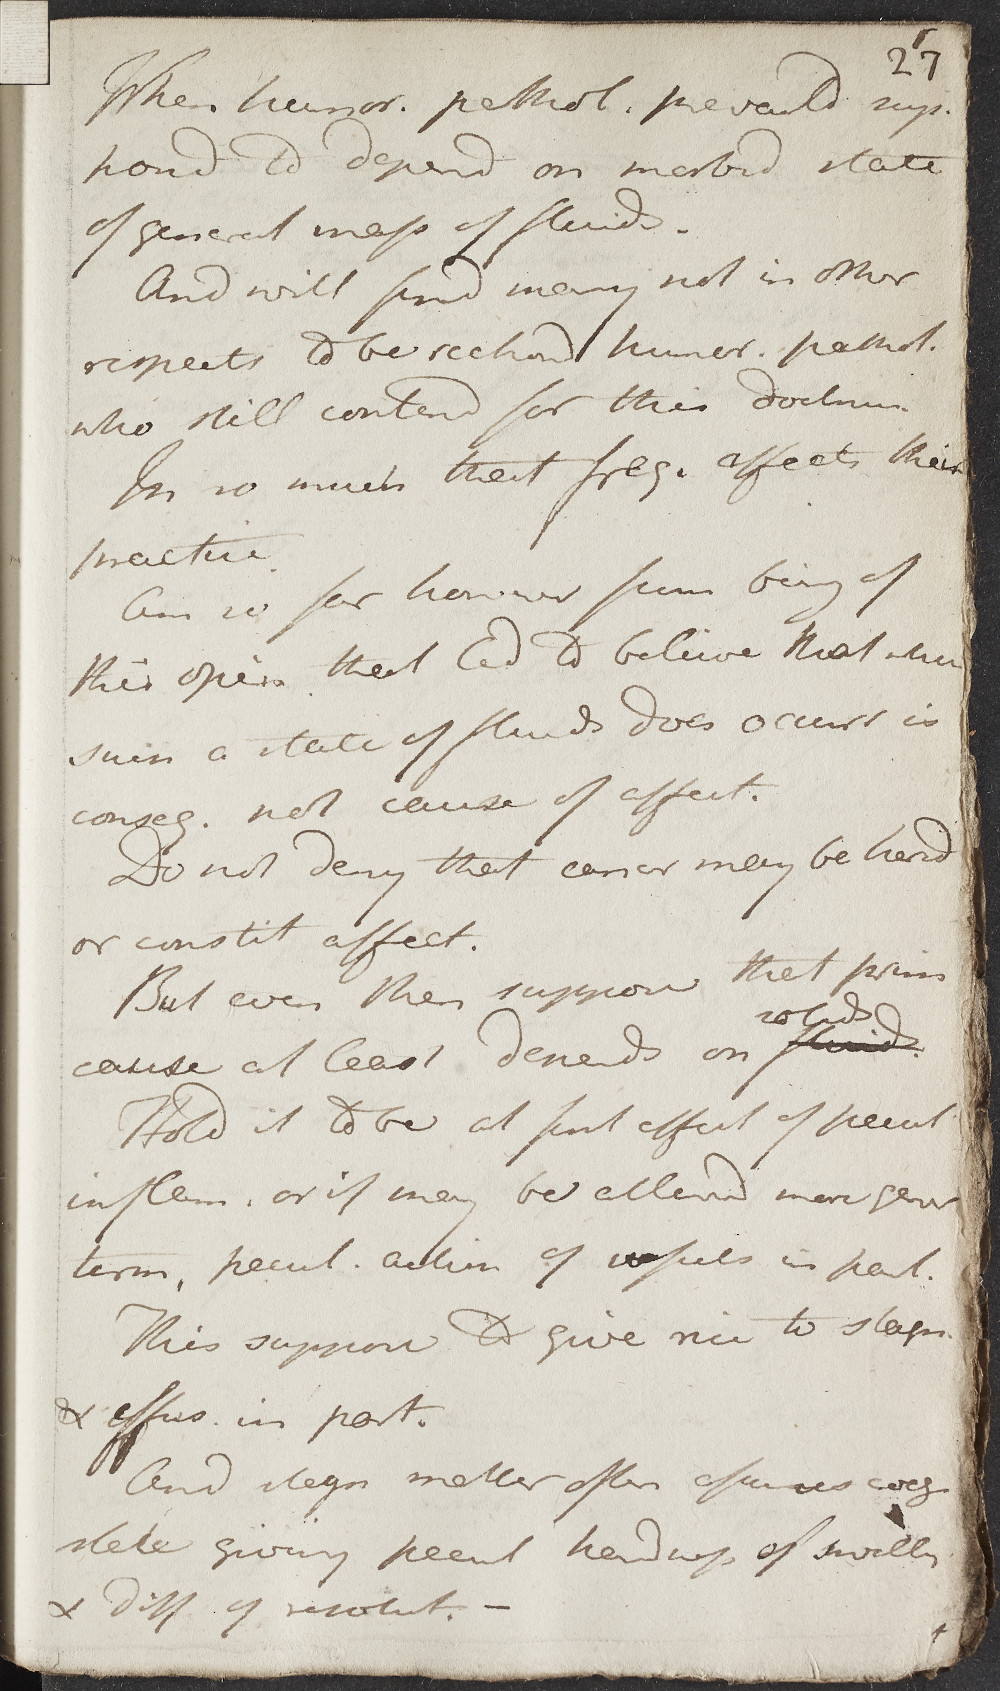 27
When humor. pathol. prevail'd sup-
pos'd to depend on morbid state
of general mass of fluids.
And will find many not in other
respects to be reckon'd humor. pathol.
who still contend for this doctrin.
In so much that freq. affects their
practice.
Am so far however from being of
this opin. that led to believe that when
such a state of fluids does occurr is
conseq. not cause of affect.
Do not deny that cancer may be hered
or constit affect.
But even then suppose that prim
solids
cause at least depends on fluids.
Hold it to be at first effect of pecul
inflam. or if may be allow'd more gener
term, pecul. action of vessels in part.
This suppose to give rise to stagn.
& effus. in part.
And stagn matter often assumes coag
state giving pecul hardness of swelling
& diff of resolut. –